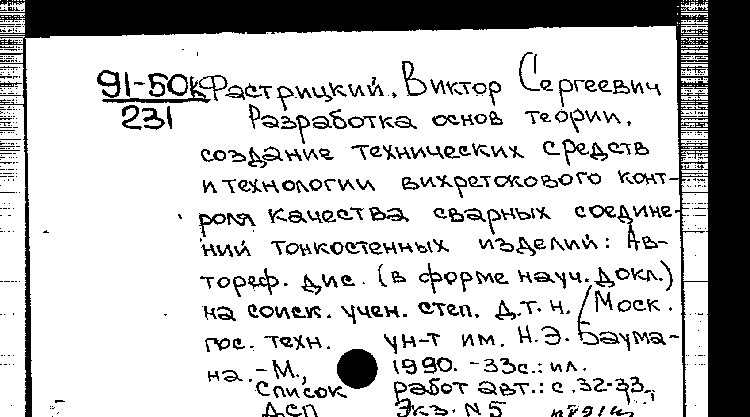 91-50к Фастрицкий, Виктор Сергеевич
231 Разработка основ теории,
создание технических средств
и технологии вихретокового конт-
роля качества сварных соедине-
ний тонкостенных изделий: Ав-
тореф. дис. (в форме науч. докл.)
на соиск. учен. степ. д.т.н. / Моск.
гос. техн. ун-т им. Н.Э. Баума-
на. - М., 1990. - 33с.: ил.
Список работ авт.: с. 32-33.
ДСП Экз. N5